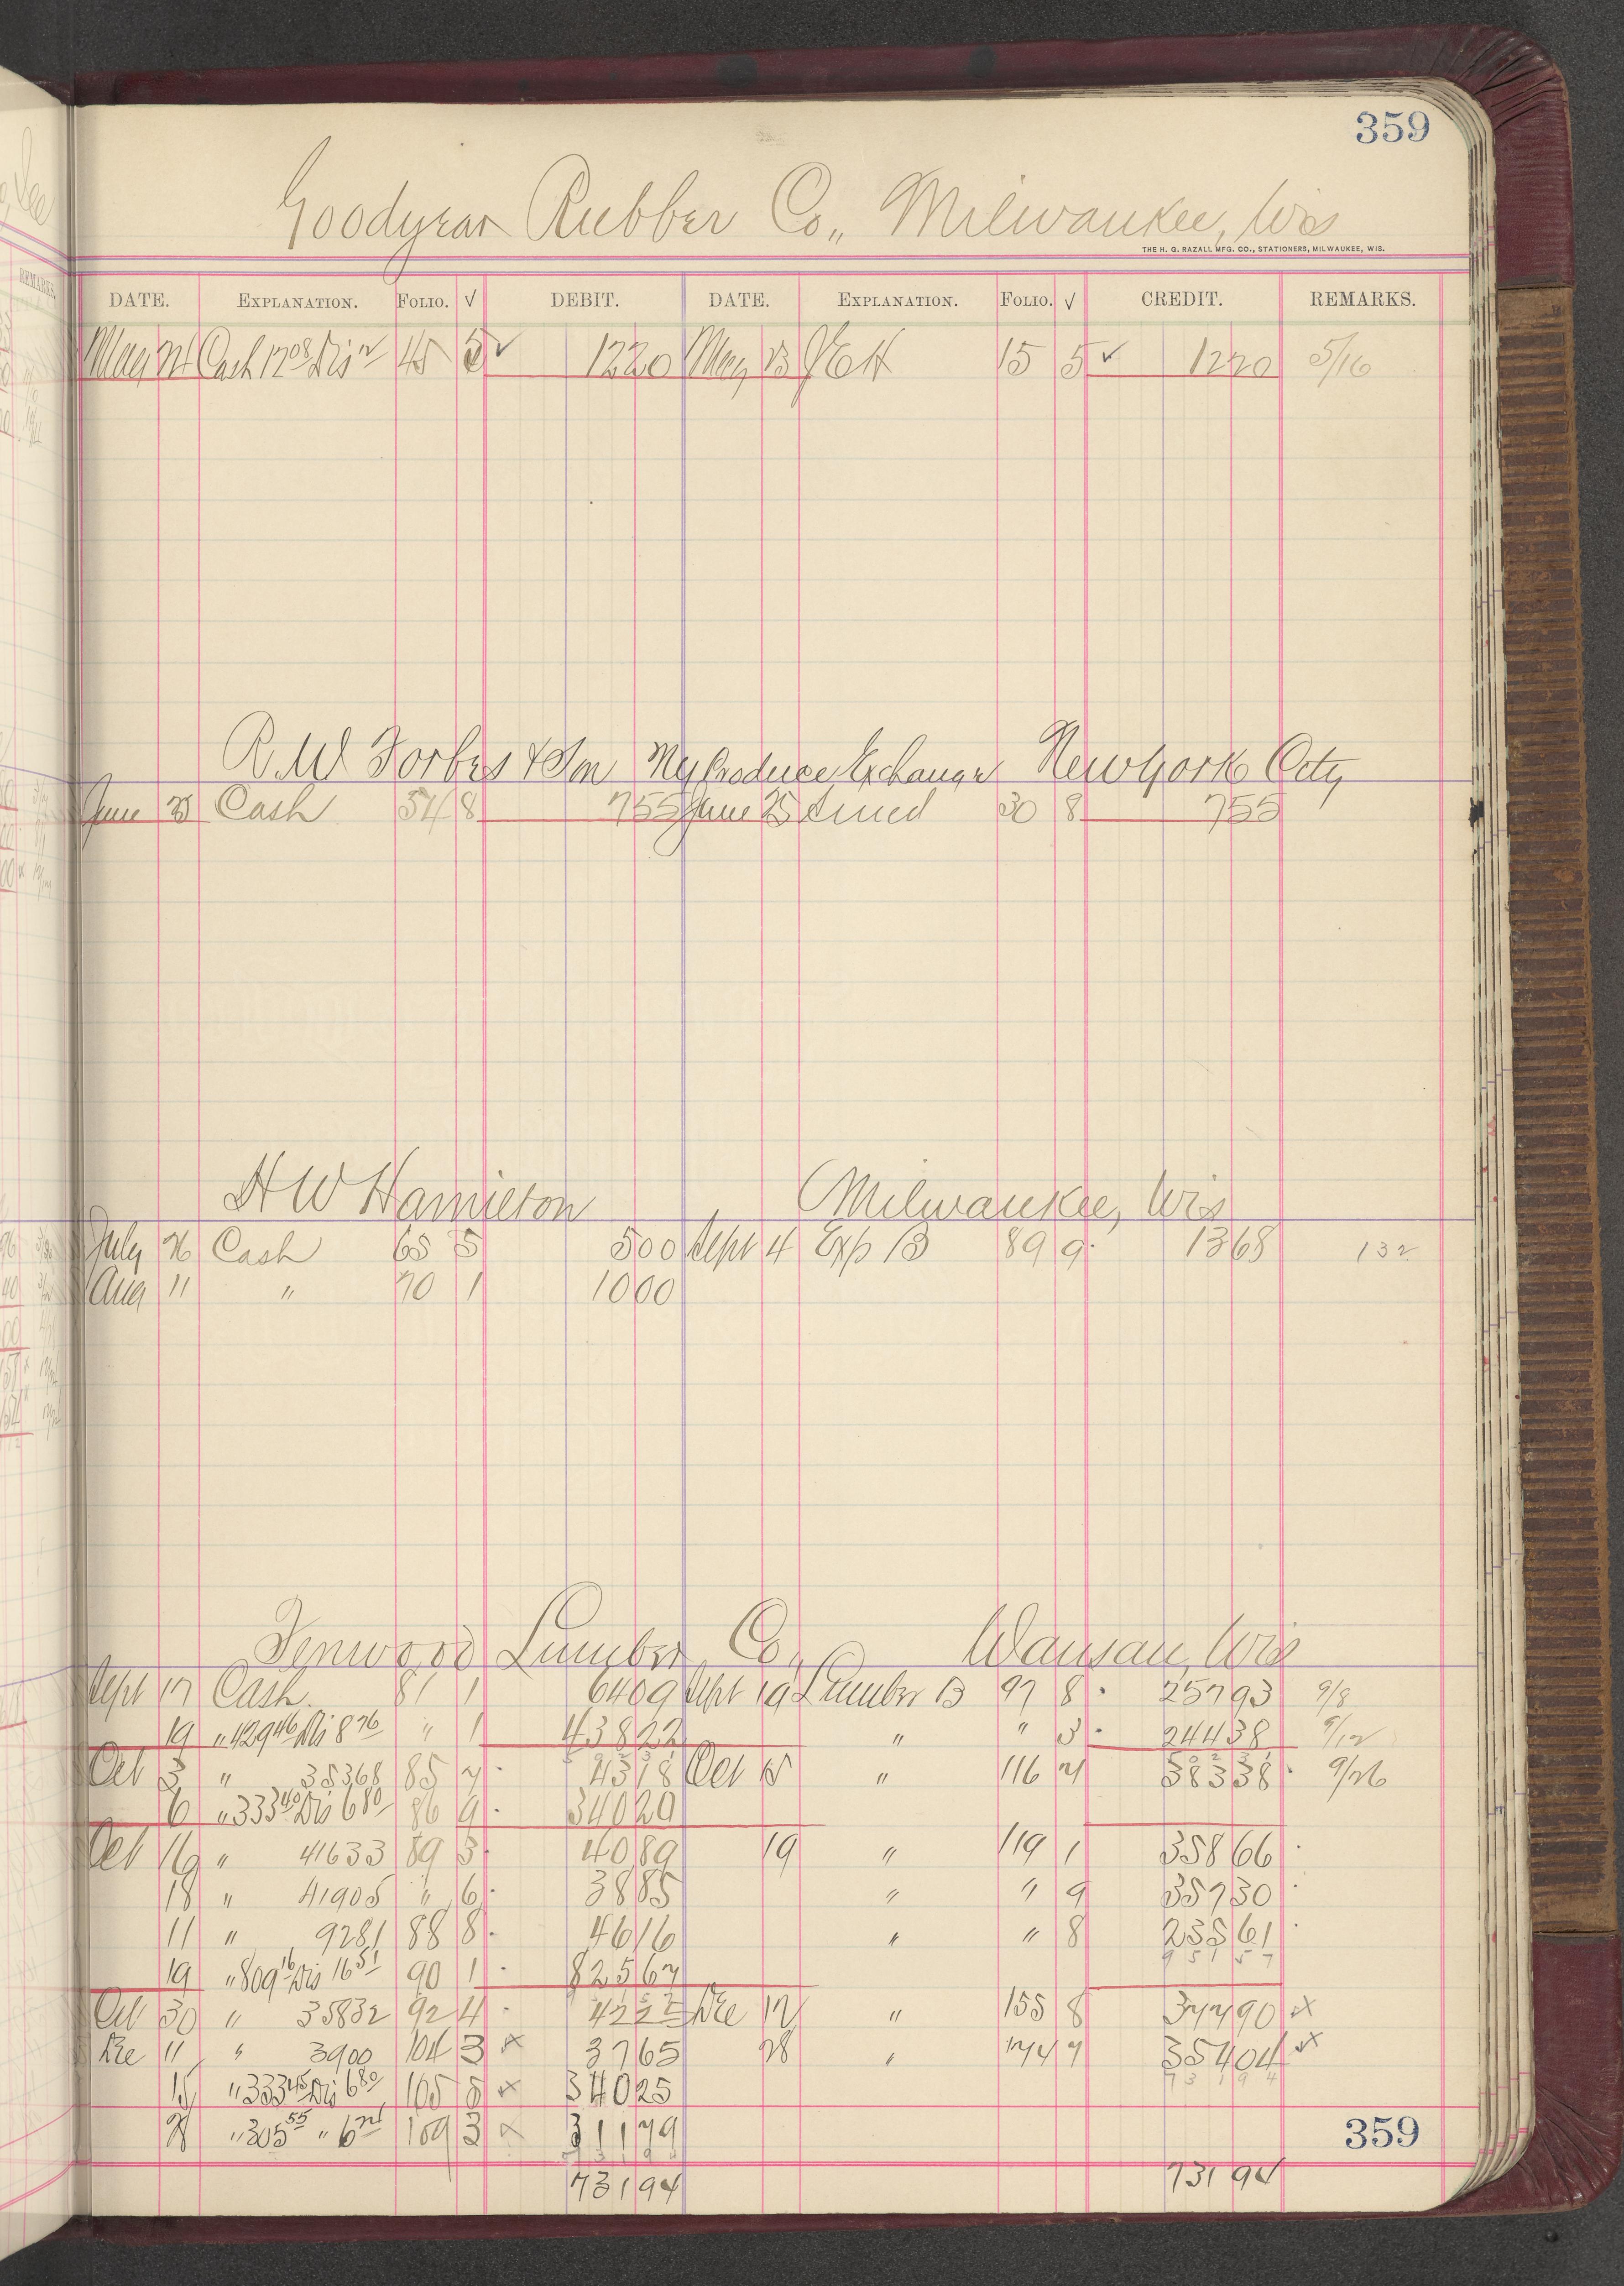 359
Goodyear Rubber Co., Milwaukee, Wis
THE H. G. RAZALL MFG. CO., STATIONERS, MILWAUKEE, WIS.
DATE. EXPLANATION. FOLIO. √ DEBIT. DATE. EXPLANATION. FOLIO. √ CREDIT. REMARKS.
May 24 Cash 12 08 Dis 12 45 5 ✓ 12 20 May 13 15 5 ✓ 12 20 5/16
R.W Forbes & Son Ny Produce Exchange New York City
June 25 Cash 54 8 7 55 June 25 30 8 7 55
H W Hamilton Milwaukee, Wis
July 26 Cash 65 5 5 00 Sept 4 Exp B 89 9 13 68 132
Aug 11 " 70 1 10 00
Fenwood Lumber Co., Wausau, Wis
Sept 17 Cash 81 1 64 09 Sept 19 Lumber B 97 8 257 93 9/8
19 " 429 46 Dis 8 76 " 1 438 22 " " 3 244 38 9/12
Oct 3 " 353 68 85 7 43 18 Oct 15 " 116 7 383 38 9/26
6 " 333 40 Dis 6 80 86 9 340 20
Oct 16 " 416 33 89 3 40 89 19 " 119 1 358 66
18 " 419 05 " 6 38 85 " " 9 357 30
11 " 92 81 88 8 46 16 " " 8 235 61
951 57
19 " 809 16 Dis 16 51 90 1 825 67
Oct 30 " 358 32 92 4 42 25 Dec 12 " 155 8 377 90 x
Dec 11 " 39 00 104 3 x 37 65 28 " 174 7 354 04 x
731 94
15 " 333 45 Dis 6 80 105 5 x 340 25
" 305 55 " 6 24 109 3 x 311 79
359
731 94 731 94